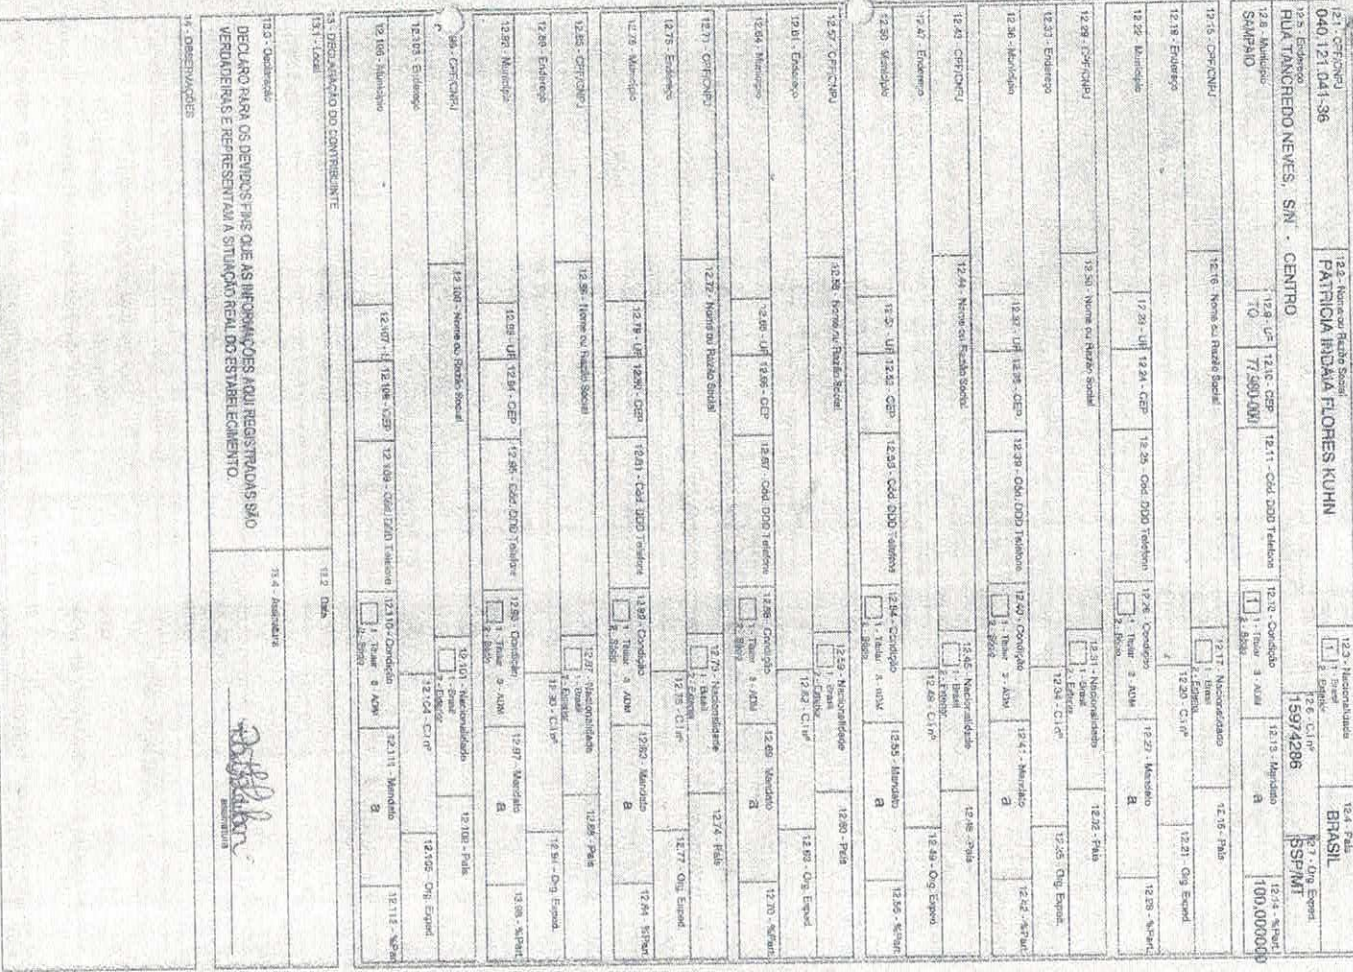 12.1 - CPF/CNPJ
040.121.041-36
12.2 - Nome ou Razão Social
PATRICIA INDAIA FLORES KUHN
12.3 - Nacionalidade
1 1 - Brasil
2 - Exterior
12.4 - País
BRASIL
12.5 - Endereço
RUA TANCREDO NEVES, S/N - CENTRO
12.6 - C.I nº
15974286
12.7 - Org. Exped.
SSP/MT
12.8 - Município
SAMPAIO
12.9 - UF
TO
12.10 - CEP
77.980-000
12.11 - Cód. DDD Telefone
12.12 - Condição
1 1 - Titular 3 - ADM
2 - Sócio
12.13 - Mandato
a
12.14 - %Part.
100,000000
12.15 - CPF/CNPJ
12.16 - Nome ou Razão Social
12.17 - Nacionalidade
1 - Brasil
2 - Exterior
12.18 - País
12.19 - Endereço
12.20 - C.I nº
12.21 - Org. Exped.
12.22 - Município
12.23 - UF
12.24 - CEP
12.25 - Cód. DDD Telefone
12.26 - Condição
1 - Titular 3 - ADM
2 - Sócio
12.27 - Mandato
a
12.28 - %Part.
12.29 - CPF/CNPJ
12.30 - Nome ou Razão Social
12.31 - Nacionalidade
1 - Brasil
2 - Exterior
12.32 - País
12.33 - Endereço
12.34 - C.I nº
12.35 - Org. Exped.
12.36 - Município
12.37 - UF
12.38 - CEP
12.39 - Cód. DDD Telefone
12.40 - Condição
1 - Titular 3 - ADM
2 - Sócio
12.41 - Mandato
a
12.42 - %Part.
12.43 - CPF/CNPJ
12.44 - Nome ou Razão Social
12.45 - Nacionalidade
1 - Brasil
2 - Exterior
12.46 - País
12.47 - Endereço
12.48 - C.I nº
12.49 - Org. Exped.
12.50 - Município
12.51 - UF
12.52 - CEP
12.53 - Cód. DDD Telefone
12.54 - Condição
1 - Titular 3 - ADM
2 - Sócio
12.55 - Mandato
a
12.56 - %Part.
12.57 - CPF/CNPJ
12.58 - Nome ou Razão Social
12.59 - Nacionalidade
1 - Brasil
2 - Exterior
12.60 - País
12.61 - Endereço
12.62 - C.I nº
12.63 - Org. Exped.
12.64 - Município
12.65 - UF
12.66 - CEP
12.67 - Cód. DDD Telefone
12.68 - Condição
1 - Titular 3 - ADM
2 - Sócio
12.69 - Mandato
a
12.70 - %Part.
12.71 - CPF/CNPJ
12.72 - Nome ou Razão Social
12.73 - Nacionalidade
1 - Brasil
2 - Exterior
12.74 - País
12.75 - Endereço
12.76 - C.I nº
12.77 - Org. Exped.
12.78 - Município
12.79 - UF
12.80 - CEP
12.81 - Cód. DDD Telefone
12.82 - Condição
1 - Titular 3 - ADM
2 - Sócio
12.83 - Mandato
a
12.84 - %Part.
12.85 - CPF/CNPJ
12.86 - Nome ou Razão Social
12.87 - Nacionalidade
1 - Brasil
2 - Exterior
12.88 - País
12.89 - Endereço
12.90 - C.I nº
12.91 - Org. Exped.
12.92 - Município
12.93 - UF
12.94 - CEP
12.95 - Cód. DDD Telefone
12.96 - Condição
1 - Titular 3 - ADM
2 - Sócio
12.97 - Mandato
a
12.98 - %Part.
99 - CPF/CNPJ
12.100 - Nome ou Razão Social
12.101 - Nacionalidade
1 - Brasil
2 - Exterior
12.102 - País
12.103 - Endereço
12.104 - C.I nº
12.105 - Org. Exped.
12.106 - Município
12.107 - U
12.108 - CEP
12.109 - Cód. DDD Telefone
12.110 - Condição
1 - Titular 3 - ADM
2 - Sócio
12.111 - Mandato
a
12.112 - %Part
13 - DECLARAÇÃO DO CONTRIBUINTE
13.1 - Local
13.2 Data
13.3 - Declaração
DECLARO PARA OS DEVIDOS FINS QUE AS INFORMAÇÕES AQUI REGISTRADAS SÃO
VERDADEIRAS E REPRESENTAM A SITUAÇÃO REAL DO ESTABELECIMENTO.
13.4 Assinatura
assinatura
14 - OBSERVAÇÕES